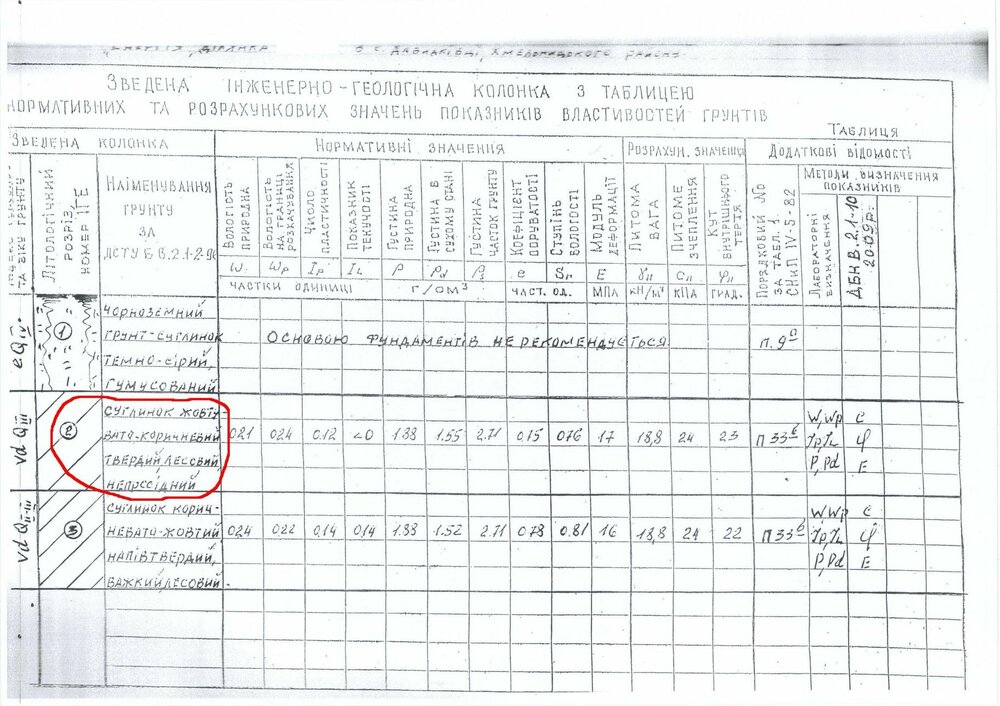 "Енергія", ділянка в с. Давидківці, Хмельницького району.
ЗВЕДЕНА ІНЖЕНЕРНО-ГЕОЛОГІЧНА КОЛОНКА З ТАБЛИЦЕЮ
НОРМАТИВНИХ ТА РОЗРАХУНКОВИХ ЗНАЧЕНЬ ПОКАЗНИКІВ ВЛАСТИВОСТЕЙ ГРУНТІВ
ТАБЛИЦЯ
ЗВЕДЕНА КОЛОНКА НОРМАТИВНІ ЗНАЧЕННЯ РОЗРАХУН. ЗНАЧЕННЯ ДОДАТКОВІ ВІДОМОСТІ
ТА ВІКУ ГРУНТУ
ЛІТОЛОГІЧНИЙ РОЗРІЗ, НОМЕР ІГЕ
НАЙМЕНУВАННЯ
ГРУНТУ
ЗА
ДСТУ Б В.2.1-2-96
ВОЛОГІСТЬ ПРИРОДНА
ВОЛОГІСТЬ НА ГРАНИЦІ РОЗКАЧУВАННЯ
ЧИСЛО ПЛАСТИЧНОСТІ
ПОКАЗНИК ТЕКУЧОСТІ
ГУСТИНА ПРИРОДНА
ГУСТИНА В СУХОМУ СТАНІ
ГУСТИНА ЧАСТОК ГРУНТУ
КОЕФІЦІЄНТ ПОРУВАТОСТІ
СТУПІНЬ ВОЛОГОСТІ
МОДУЛЬ ДЕФОРМАЦІЇ
ПИТОМА ВАГА
ПИТОМЕ ЗЧЕПЛЕННЯ
КУТ ВНУТРІШНЬОГО ТЕРТЯ
ПОРЯДКОВИЙ No ЗА ТАБЛ. 1. СНиП IV-5-82
МЕТОДИ ВИЗНАЧЕННЯ
ПОКАЗНИКІВ
ЛАБОРАТОРНІ ВИЗНАЧЕННЯ
ДБН В.2.1-10 2009р.
W Wp Ip IL ρ ρd ρs e Sr E γII cII φII
ЧАСТКИ ОДИНИЦІ Г/СМ³ ЧАСТ. ОД. МПА КН/М³ КПА ГРАД.
eQ IV
1
ЧОРНОЗЕМНИЙ
ГРУНТ-СУГЛИНОК ОСНОВОЮ ФУНДАМЕНТІВ НЕ РЕКОМЕНДУЄТЬСЯ п. 9а
ТЕМНО-СІРИЙ,
ГУМУСОВАНИЙ
vd Q III
СУГЛИНОК ЖОВТУ- W, Wp c
2 ВАТО-КОРИЧНЕВИЙ 0.21 0.24 0.12 <0 1.88 1.55 2.71 0.75 0.76 17 18,8 24 23 п 33б Ip, IL φ
ТВЕРДИЙ, ЛЕСОВИЙ, ρ, ρd E
НЕПРОСІДНИЙ
vd Q II-III
СУГЛИНОК КОРИЧ- W, Wp c
3 НЕВАТО-ЖОВТИЙ 0.24 0.22 0.14 0.14 1.88 1.52 2.71 0.78 0.81 16 18,8 24 22 п 33б Ip, IL φ
НАПІВТВЕРДИЙ, ρ, ρd E
ВАЖКИЙ, ЛЕСОВИЙ.